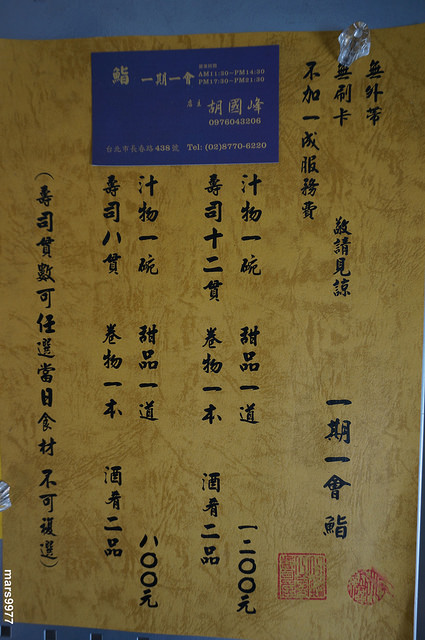 無外帶
無刷卡
不加一成服務費
敬請見諒
一期一會 鮨
壽司十二貫 卷物一本 酒肴二品
汁物一碗 甜品一道 一二〇〇元
壽司八貫 卷物一本 酒肴二品
汁物一碗 甜品一道 八〇〇元
(壽司貫數可任選當日食材 不可複選)
鮨 一期一會
營業時間
AM11:30~PM14:30
PM17:30~PM21:30
店主 胡國峰
0976043206
台北市長春路438號 Tel: (02)8770-6220
mars9977